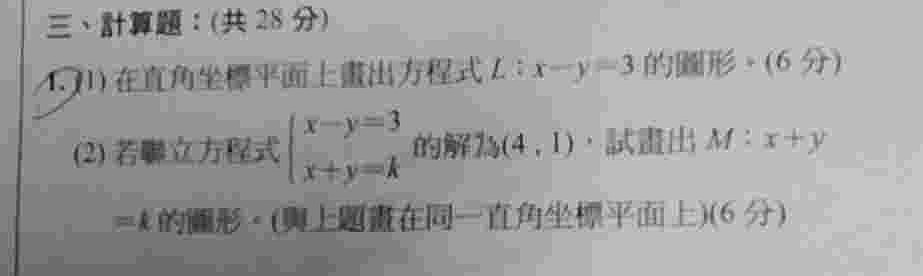 三、計算題：(共 28 分)
1. (1) 在直角坐標平面上畫出方程式 L：x－y＝3 的圖形。(6 分)
(2) 若聯立方程式 { x－y＝3 x＋y＝k 的解為(4 , 1)，試畫出 M：x＋y
＝k 的圖形。(與上題畫在同一直角坐標平面上)(6 分)